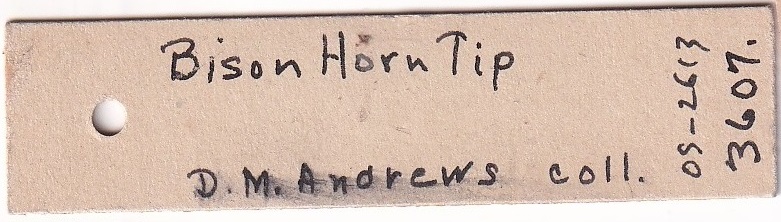 Bison Horn Tip
D. M. Andrews coll.
OS-2613
3607.